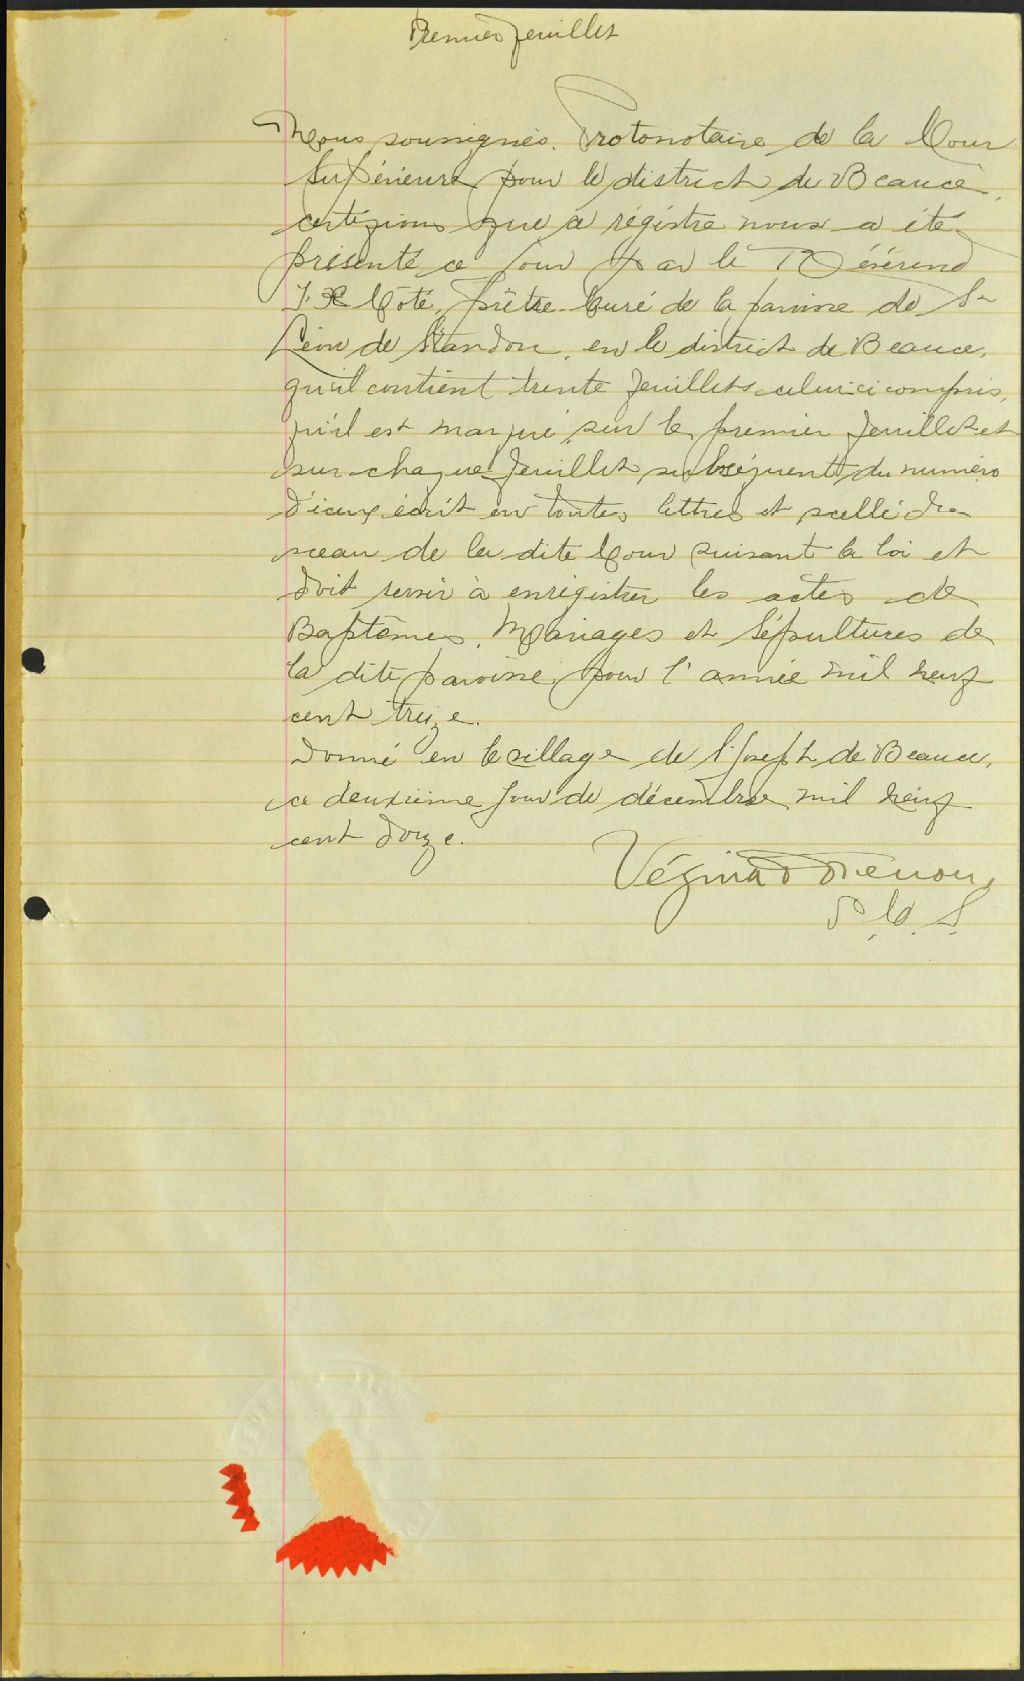 Premier feuillet
Nous soussignés, Protonotaire de la Cour
Supérieure pour le district de Beauce,
certifions que ce régistre nous a été
présenté ce jour par le Révérend
Côté, prêtre Curé de la paroisse de St
Léon de Standon, en le district de Beauce,
qu'il contient trente feuillets celui-ci compris,
qu'il est marqué sur le premier feuillet et
sur chaque feuillet subséquent du numéro
d'iceux écrit en toutes lettres et scellé du
sceau de la dite Cour suivant la loi et
doit servir à enrégistrer les actes de
Baptêmes, Mariages et Sépultures de
la dite paroisse pour l'année mil neuf
cent treize.
Donné en le village de St Joseph de Beauce,
ce deuxième jour de décembre mil neuf
cent douze.
Vézina
P. C. S.